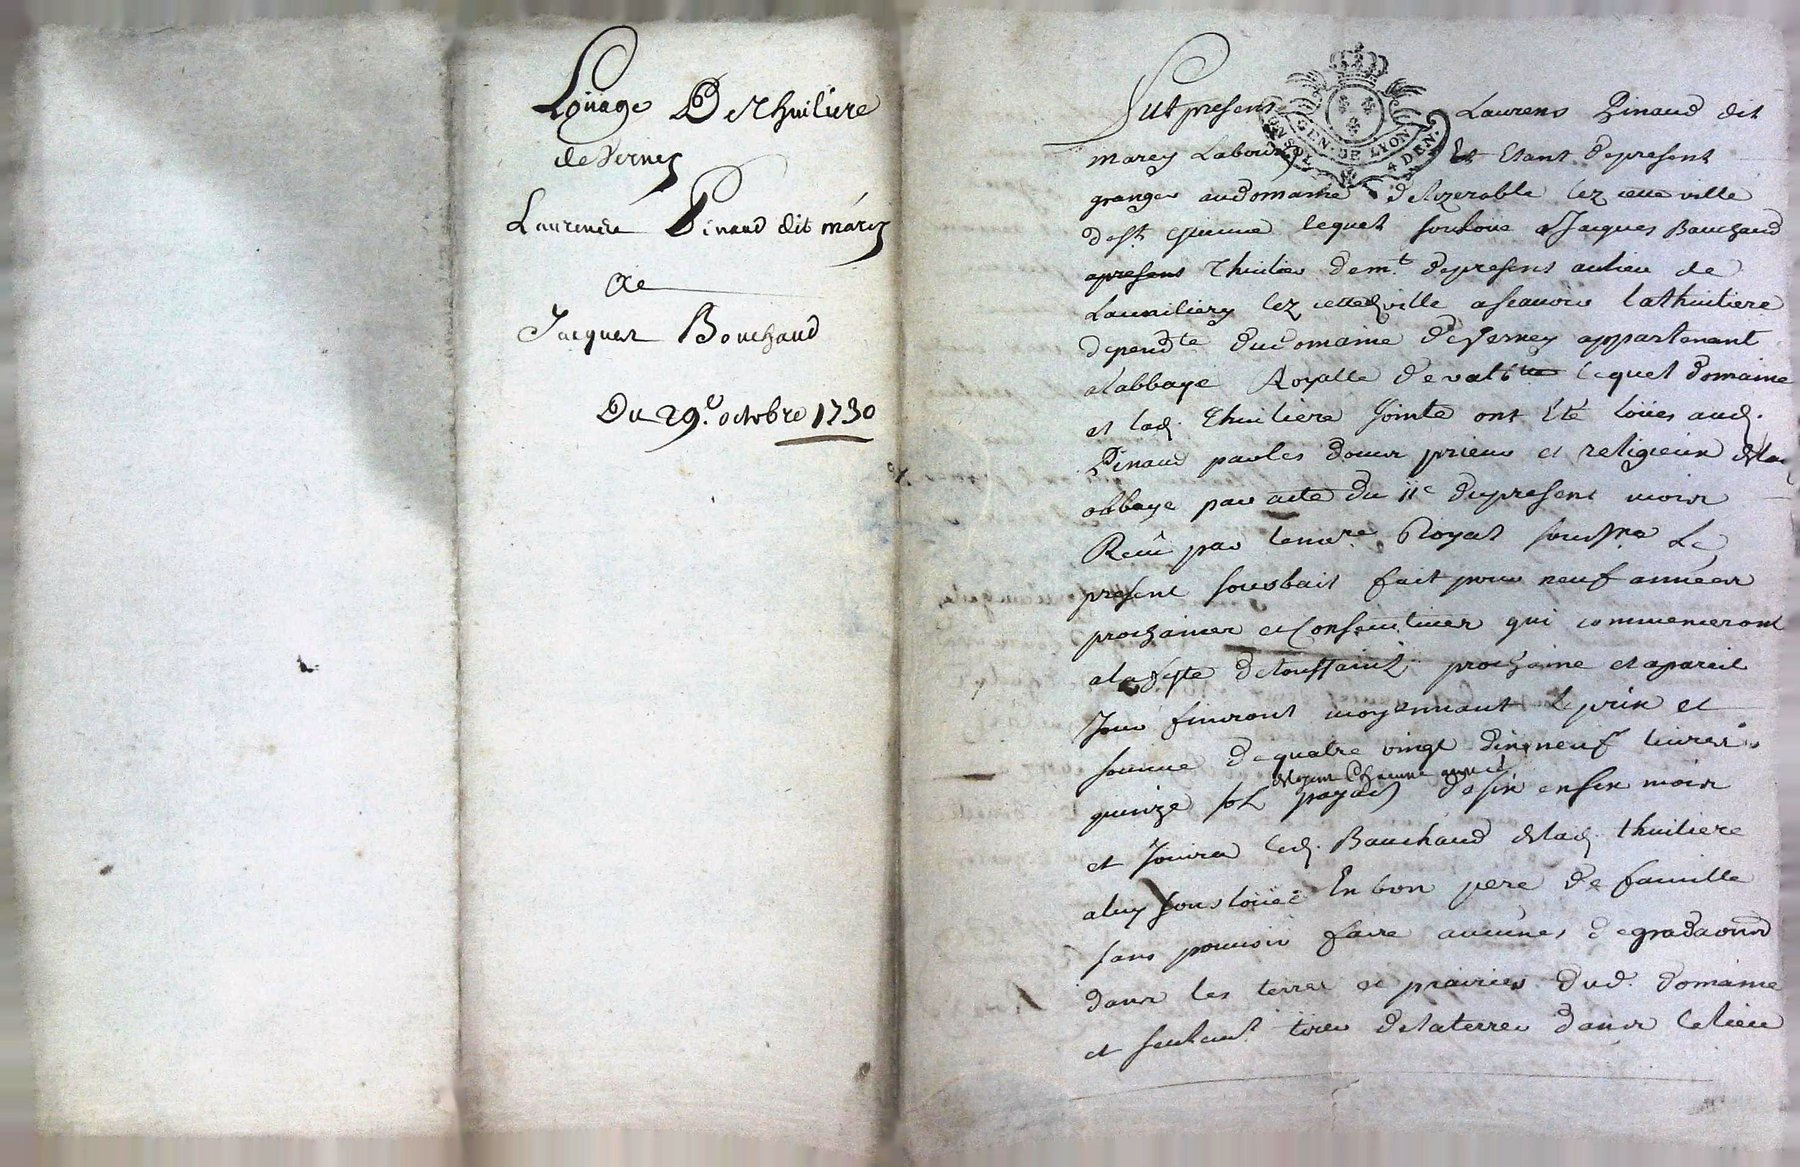 Loüage De Thuiliere
de Verney
Laurence Pinaud dit marey
De
Jacques Bouchaud
Du 29e. octobre 1730
Fut present Laurens Pinaud dit
marey Laboureur Et Etant depresent
granger audomaine delozerable lez cette ville
dest lequel souloüe a Jacques Bauchaud
apresent Thuilier demt. depresent aulieu de
lez cetted ville ascavoir lathuiliere
dependte dudomaine de Verney appartenant
alabbaye Royalle devalb lequel domaine
et lad. thuiliere Jointe ont Eté loües aud.
Pinaud parles prieur et religieux delad
abbaye par acte du 11e dupresent mois
Receu par lenore Royal soussne Le
present sousbail fait pour neuf années
prochaines et Consecutives qui commenceront
alafeste detoussaint prochaine et apareil
Jour finiront moyennant le prix et
somme dequatre vingt dix neuf livres
Chacune année
quinze sol payab desix ensix mois
et Jouira led. Bauchaud delad. thuiliere
aluy sous loüée En bon pere de famille
sans pouvoir faire aucunes degradaons
dans les terres et prairies dud. domaine
et seulemt. tirer delaterre dans lelieu
GEN. DE LYON
4 DEN.